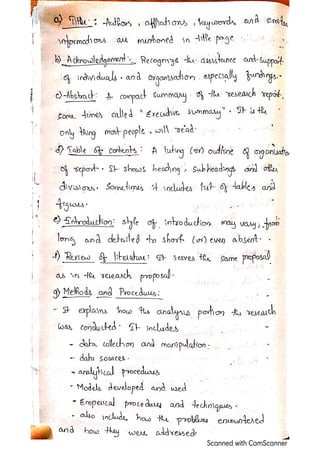 a) Title : - Authors, affliations, keywords and similar
informations are mentioned in title page
b) Acknowledgement :- Recognizes the assistance and support
of individuals and organisation especially fundings.
c) Abstract: A compact summary of the research report,
some times called "Executive summary". It is the
only thing most people will read.
d) Table of contents : A listing (or) outline of organisation
of report. It shows heading, subheadings and other
divisions. Sometimes it includes list of tables and
figures.
e) Introduction: style of introduction may vary, from
long and detailed to short (or) even absent.
f) Review of literature: It serves the same proposal
as in the research proposal.
g) Methods and Procedures:
- It explains how the analysis portion the research
was conducted. It includes
- data collection and manipulation.
- data sources.
- analytical procedures
- Models developed and used
- Emperical procedures and techniques.
- also include how the problems encountered
and how they were addressed
Scanned with CamScanner